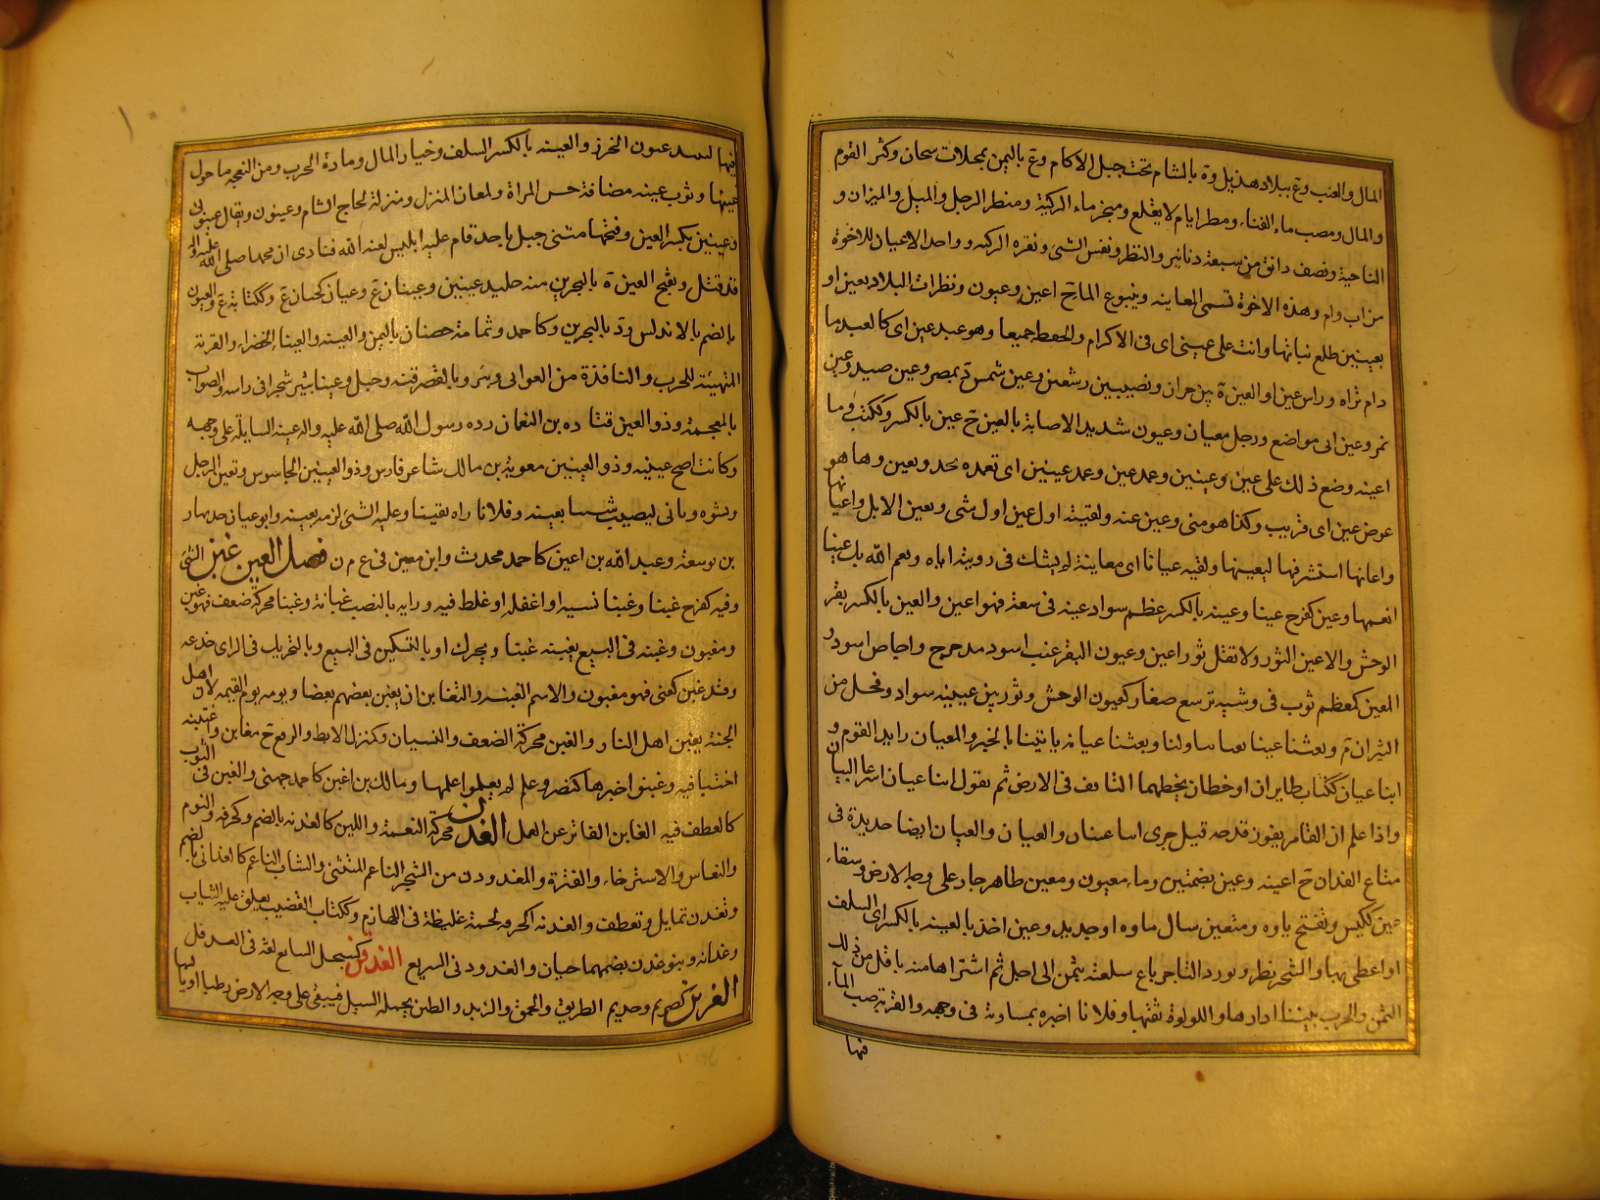 المال والعنب وع ببلاد هذيل وة بالشام تحت جبل الاكام وع باليمن بمخلاف سنحان وكثر القوم
والمال ومصب ماء القناة ومطر ايام لا يقلع ومفجر ماء الركية ومنظر الرجل والميل والميزان و
الناحية ونصف دانق من سبعة دنانير والنظر ونفس الشئ ونقرة الركبة وواحد الاعيان للاخوة
من اب وام وهذه الاخوة تسمى المعاينة وينبوع الماء ج اعين وعيون ونظرت البلاد بعين او
بعينين طلع نباتها وانت على عينى اى فى الاكرام والحفظ جميعا وهو عبد عين اى كالعبد ما
دام تراه وراس عين او العين ة بين حران ونصيبين وعين شمس ة بمصر وعين صيد وعين
تمر وعين ابى مواضع ورجل معيان وعيون شديد الاصابة بالعين ج عين بالكسر وككتب وما
اعينه وصنع ذلك على عين وعينين وعمد عين وعمد عينين اى تعمده بجد ويقين وها هو
عرض عين اى قريب وكذا هو منى وعين عنه ولقيته اول عين اول شئ وتعين الابل واعتانها
واعانها استشرفها ليعينها ولقيه عيانا اى معاينة لم يشك فى رويته اياه ونعم الله بك عينا
انعمها وعين كفرح عينا وعينه بالكسر عظم سواد عينه فى سعة فهو اعين والعين بالكسر بقر
الوحش والاعين الثور ولا تقل ثور اعين وعيون البقر عنب اسود مدحرج واجاص اسود و
المعين كمعظم ثوب فى وشيه ترابيع صغار كعيون الوحش وثور بين عينيه سواد وفحل من
الثيران م وبعثنا عينا يعتاننا ولنا وبعثنا عيانه ياتينا بالخبر والمعتان رايد القوم و
ابنا عيان ككتاب طايران او خطان يخطهما العايف فى الارض ثم يقول ابنا عيان اسرعا البيان
واذا علم ان القامر يفوز قدحه قيل جرى ابنا عيان والعيان ايضا حديدة فى
متاع الفدان ج اعينه وعين بضمتين وماء معيون ومعين ظاهر جار على وجه الارض وسقاء
عين ككيس وتفتح ياوه ومتعين سال ماوه او جديد وعين اخذ بالعينة بالكسر اى السلف
او اعطى بها والشجر نظر ونور والتاجر باع سلعته بثمن الى اجل ثم اشتراها منه باقل من ذلك
الثمن والحرب بيننا ادارها واللولوة ثقبها وفلانا اخبره بمساوئه فى وجهه والقربة صب الماء
فيها
فيها لتنسد عيون الخرز والعينة بالكسر السلف وخيار المال ومادة الحرب ومن النعجة ما حول
عينها وثوب عينة مضافة حسن المراة ولمعان المنزل ومنزلة لحاج الشام وعينون ويقال عينونى
وعينين بكسر العين وفتحها مثنى جبل باحد قام عليه ابليس لعنه الله فنادى ان محمدا صلى الله عليه واله
قد قتل وبفتح العين ة بالبحرين منه خليد عينين وعينان ع وعيان كحبان ع وككتابة ع والعيون
بالضم ة بالاندلس وة بالبحرين وكاحمد وثمامة حصنان باليمن والعينه والعيناء الخضراء والقربة
المتهيئة للخرق والنافذة من القوافى وبئر وبالقصر قنه وجبل وعيناء بثبير شجر فى راسه والصواب
بالمعجمة وذو العين قتادة بن النعمان رد رسول الله صلى الله عليه واله عينه السايلة على وجهه
وكانت اصح عينيه وذو العينين معوية بن مالك شاعر فارس وذو العيينين الجاسوس وتعين الرجل
وتشوه وتانى ليصيب شيئا بعينه وفلانا راه يقينا وعليه الشئ لزمه بعينه وابو عيان جد نهار
بن توسعة وعبد الله بن اعين كاحمد محدث وابن معين فى م ع ن فصل الغين غبن الشئ
وفيه كفرح غبنا وغبنا نسيه او اغفله او غلط فيه ورايه بالنصب غبانة وغبنا محركة ضعف فهو غبين
ومغبون وغبنه فى البيع يغبنه غبنا ويحرك او بالتسكين فى البيع وبالتحريك فى الراى خدعه
وقد غبن كعنى فهو مغبون والاسم الغبينة والتغابن ان يغبن بعضهم بعضا ويوم القيمة لان اهل
الجنة يغبن اهل النار والغبن محركة الضعف والنسيان وكمنزل الابط والرفغ ج مغابن واغتبنه
اختباه فيه وغبنوا خبرها كنصر وعلم لم يعلموا علمها ومالك بن اغبن كاحمد جهنى والغبن فى الثوب
كالعطف فيه الغابن الفاتر عن العمل الغدن محركة النعمة واللين كالغدنة بالضم وكحرقة والنوم
والنعاس والاسترخاء والفترة والمغدودن من الشجر الناعم المتثنى والشاب الناعم كالغدانى بالضم
وتغدن تمايل وتعطف والغدنة كحرقة لحمة غليظة فى اللهازم وككتاب القضيب يعلق عليه الثياب
وغدانه وبنو غدن بضمهما حيان والغدودنى السريع الغدقن كسبحل السابع لغة فى الغدفل
الغرين كصريم وحذيم الطريق والحمق والزبد والطين يحمله السيل فيبقى على وجه الارض رطبا او يابسا